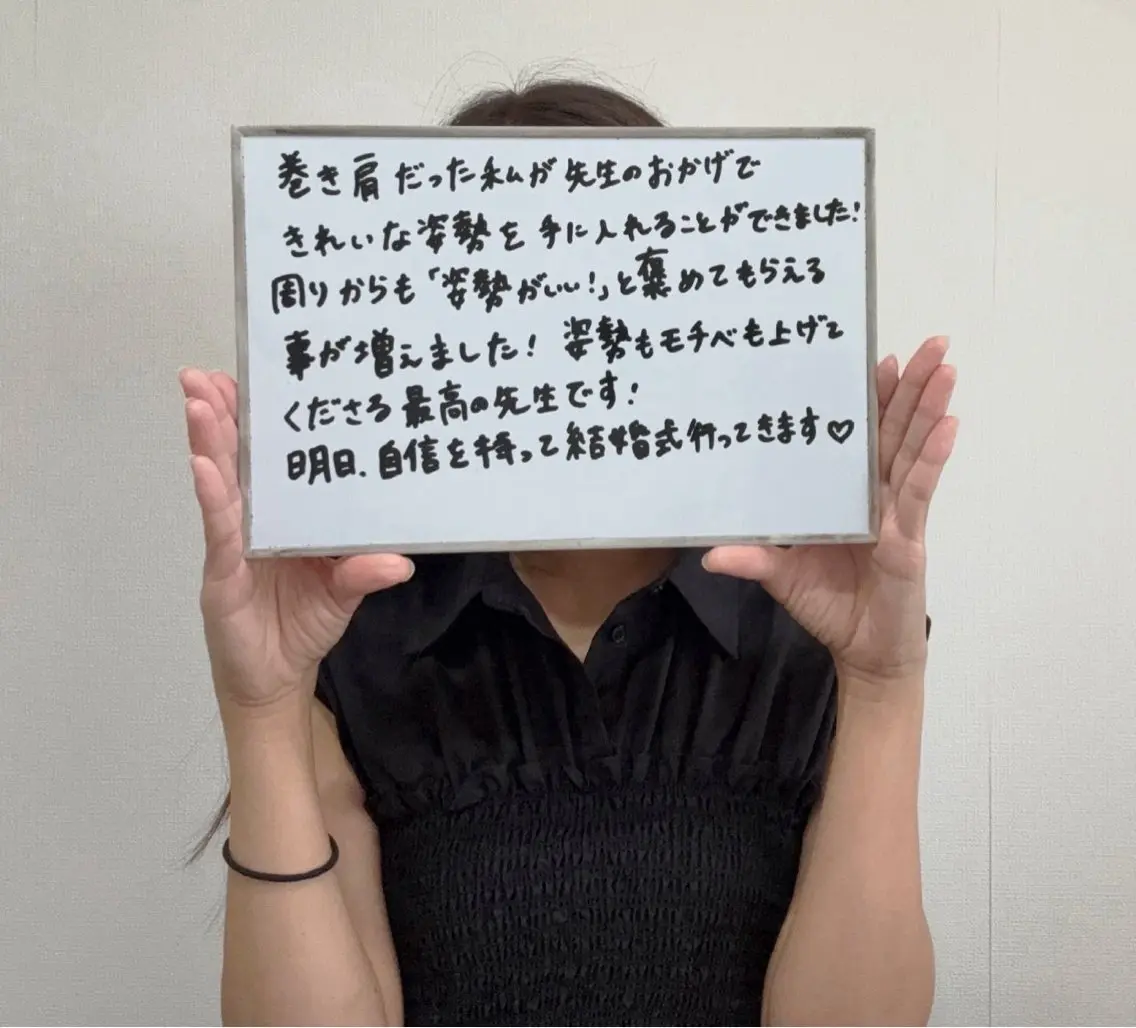 巻き肩だった私が先生のおかげで
きれいな姿勢を手に入れることができました!
周りからも「姿勢がいい!」と褒めてもらえる
事が増えました! 姿勢もモチベも上げて
くださる最高の先生です!
明日、自信を持って結婚式行ってきます♡